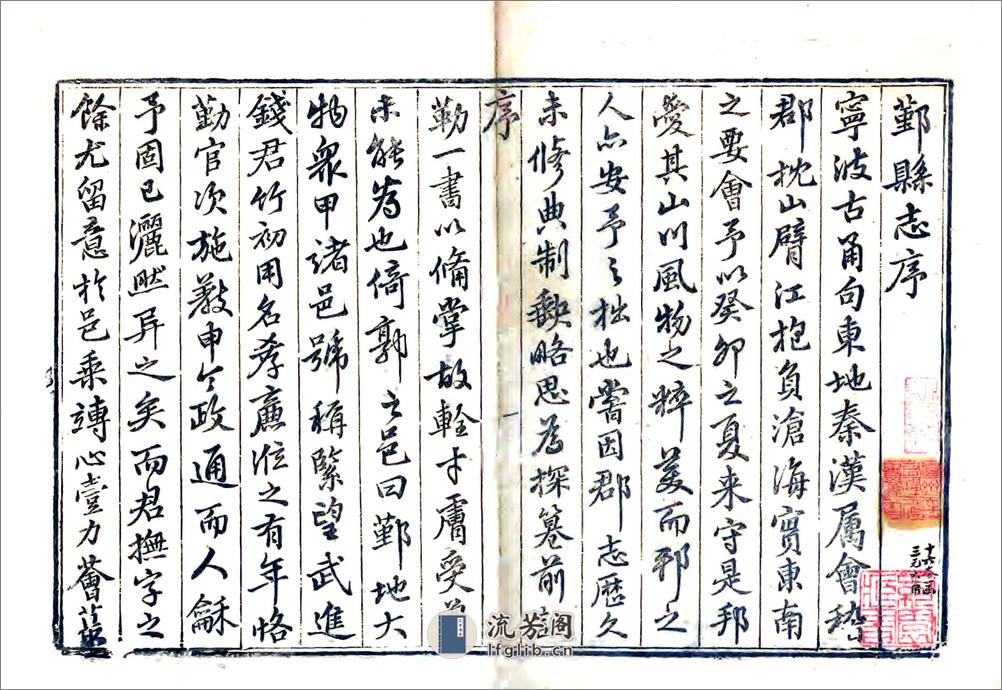 鄞縣志序
寧波古甬句東地秦漢属會稽
郡枕山臂江抱負滄海實東南
之要會予以癸卯之夏来守是邦
愛其山川風物之粹美而邦之
人亦安予之拙也嘗因郡志歴久
未修典制缺略思為探纂前
序
一
勒一書以備掌故輇才膚受
未能為也倚郭之邑曰鄞地大
物衆甲諸邑號稱緊望武進
錢君竹初用名孝廉涖之有年恪
勤官次施教申令政通而人龢
予固已灑然异之矣而君撫字之
餘尤留意於邑乗竱心壹力薈蕞
十六本二函
流芳阁
lfglib.cn